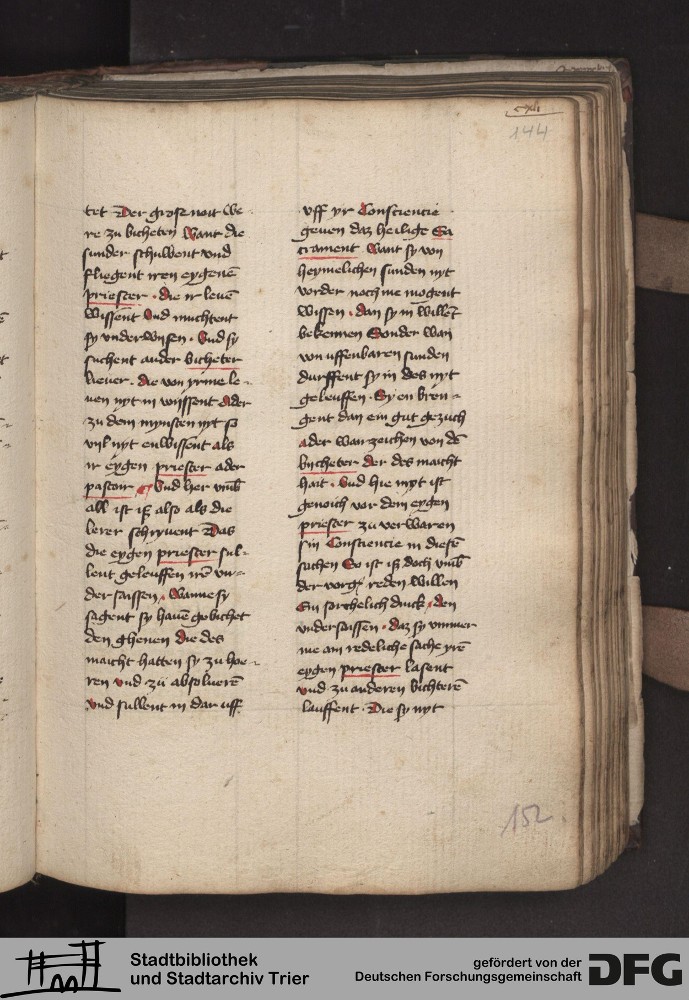 cxli
144
tet Der grosz noit we
re zu bichten Want die
sunder schuwent vnd
fliegent iren eygenē
priester · die ir leuē
wissent Vnd muchtent
sy vnderwysen · Vnd sy
suchent ander bichter
lieuer · die von yrme le-
uen nyt in wissent Ader
zu dem mynsten nyt so
vyl nyt enwissent als
ir eygen priester ader
pastoir Vnd her vmb
all ist iß also als die
lerer schryuent Das
die eygen priester sul-
lent geleuffen irē vn-
dersaissen · Wanne sy
sagent sy hauē gebichtet
den ghenen die des
maicht hatten sy zu hoe-
ren vnd zu absoluerē
vnd sullent in dar uff
vff yr Consciencie
geuen daz heilige Sa
crament Want sy von
heymelichen sunden nyt
vorder noch me mogent
wissen · dan sy in willēt
bekennen Sonder wan
von uffenbaren sunden
durffent sy in des nyt
geleuffen · Sy en bren-
gent dan ein gut gezuch
ader warzeichen von dē
bichter der des maicht
hait · Vnd hie myt ist
genoich vor dem eygen
priester zu verwaren
sin Consciencie in diesē
sachen So ist iß doch vmb
der vorg reden willen
Ein sorchelich dinck · den
vndersaissen · daz sy vmmer
me ain redeliche sache yrē
eygen priester lasent
vnd zu anderen bichterē
lauffent · Die sy nyt
152
Stadtbibliothek
und Stadtarchiv Trier
gefördert von der
Deutschen Forschungsgemeinschaft
DFG